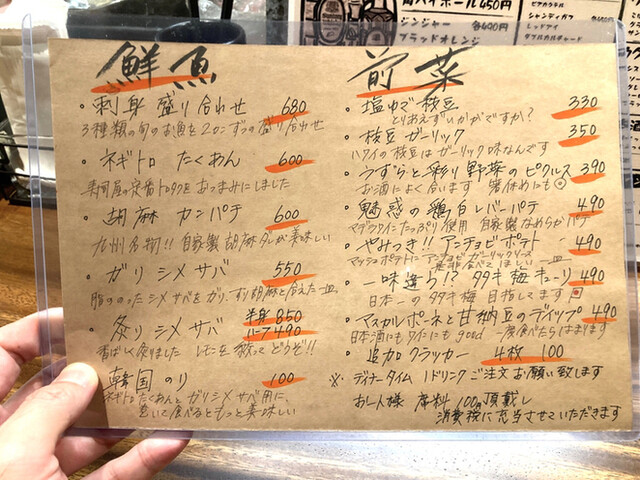 角ハイボール 450円
ジンジャー 各490円
ブラッドオレンジ
ビアカクテル
シャンディガフ
レッドアイ
ダブルカルチャード
鮮魚
・刺身 盛り合わせ 680
3種類の旬のお魚を2つずつの盛り合わせ
・ネギトロ たくあん 600
寿司屋の定番トロタクをおつまみにしました
・胡麻カンパチ 600
九州名物!! 自家製 胡麻ダレが美味しい
・ガリ シメサバ 550
脂ののったシメサバをガリ、すり胡麻と和えた一皿
・炙り シメサバ 半身850
ハーフ490
香ばしく炙りました レモンを搾ってどうぞ!!
・韓国のり 100
ネギトロたくあんとガリシメサバ用に、
巻いて食べるともっと美味しい
前菜
・塩ゆで枝豆 330
とりあえずいかがですか?
・枝豆ガーリック 350
ハワイの枝豆はガーリック味なんです
・うずらと彩り野菜のピクルス 390
お酒によく合います 箸休めにも◎
・魅惑の鶏白レバーパテ 490
マデラワインたっぷり使用 自家製なめらかパテ
・やみつき!! アンチョビポテト 490
マッシュポテトにアンチョビガーリックソース
是非食べてほしい一皿
・一味違う!? タタキ梅キューリ 490
日本一のタタキ梅目指してます
・マスカルポーネと甘納豆のディップ 490
日本酒にもワインにもgood 一度食べたらはまります
・追加クラッカー 4枚 100
※ ディナータイム 1ドリンクご注文お願い致します
お一人様 席料 100円頂戴し
消費税に充当させていただきます